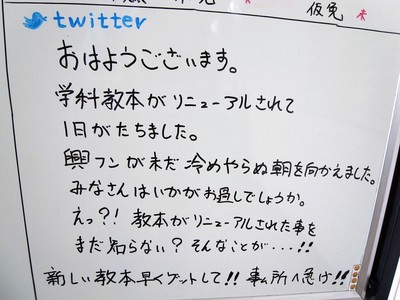 仮免 未
twitter
おはようございます。
学科教本がリニューアルされて
1日がたちました。
興フンが未だ冷めやらぬ朝を向かえました。
みなさんはいかがお過しでしょうか。
えっ?! 教本がリニューアルされた事を
まだ知らない? そんなことが・・・!!
新しい教本早くゲットして!! 事ム所へ急げ!!